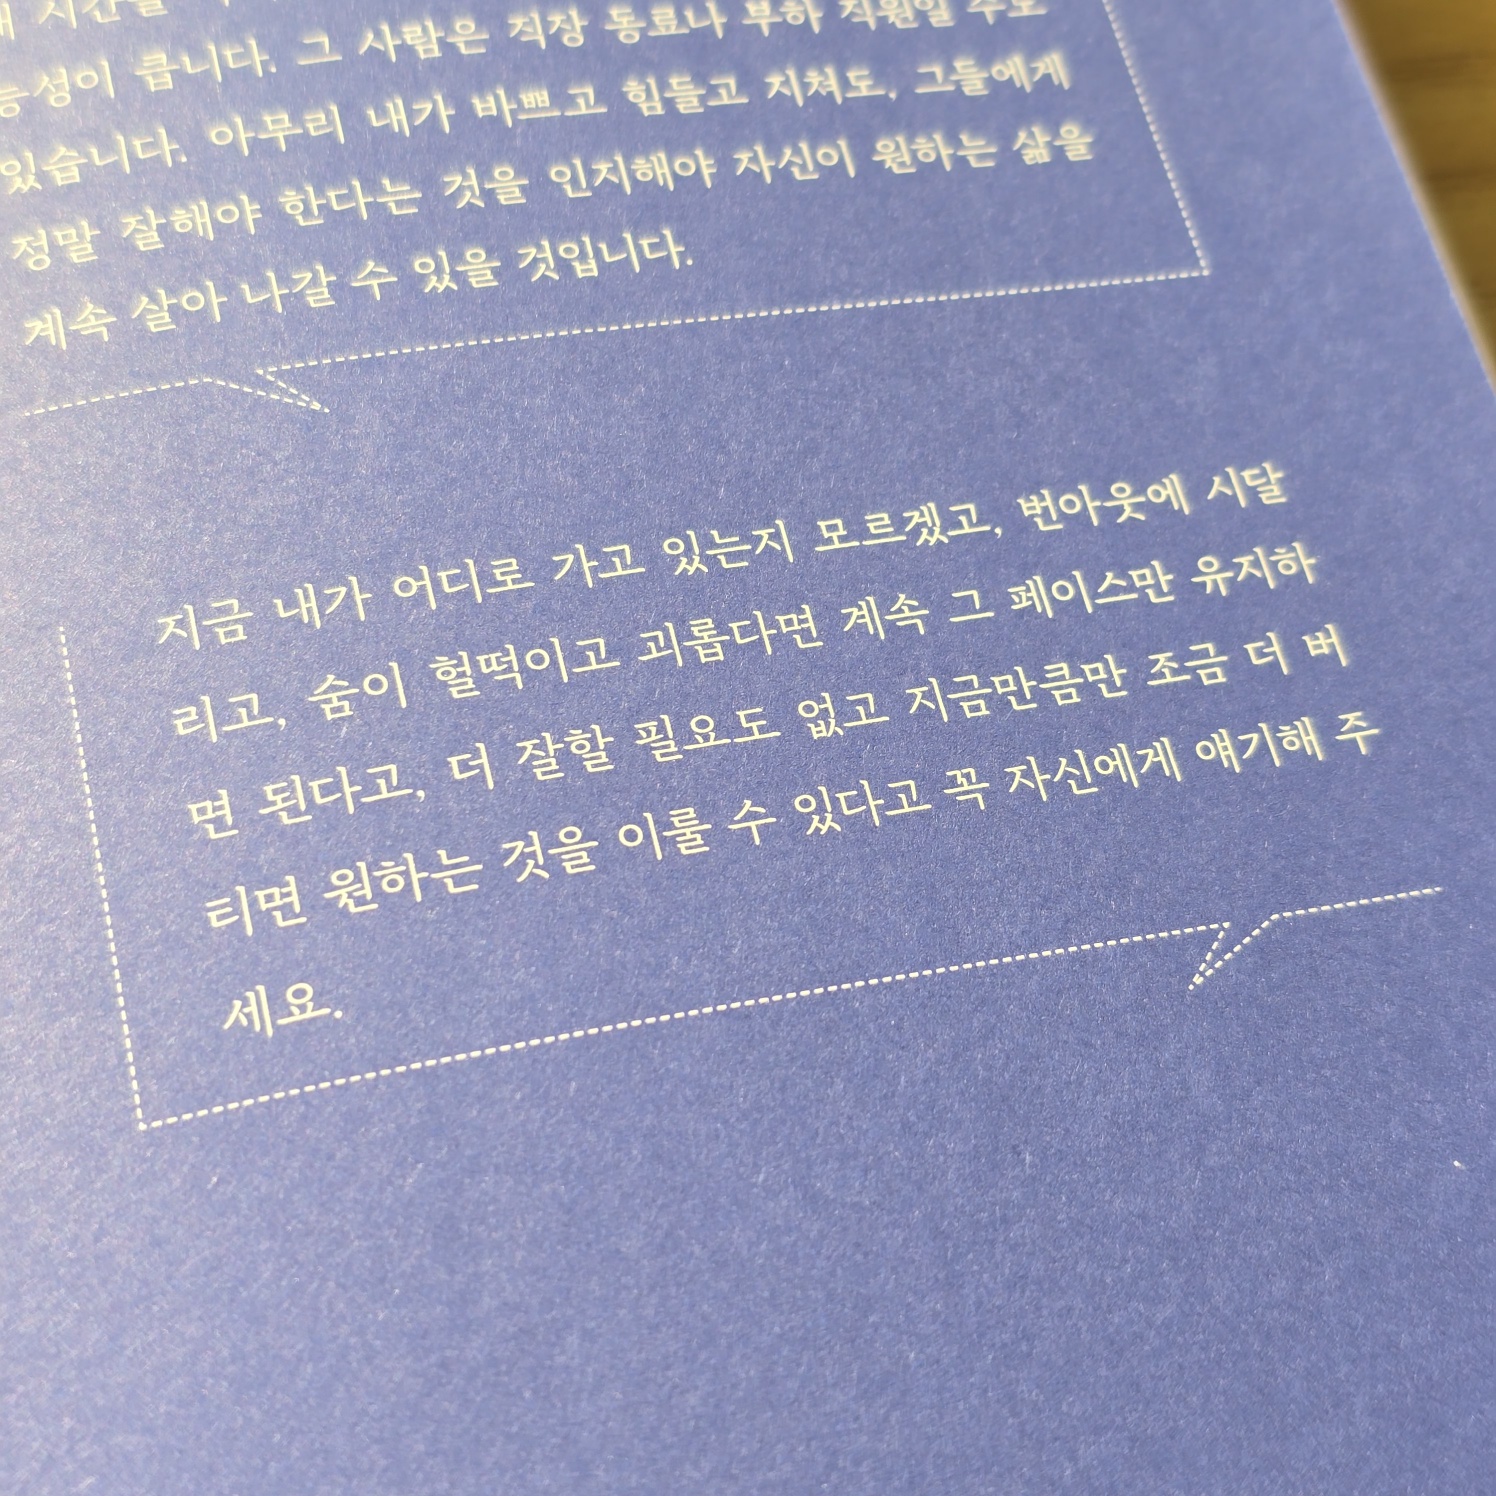 시간을
능성이 큽니다. 그 사람은 직장 동료나 부하 직원일 수도
있습니다. 아무리 내가 바쁘고 힘들고 지쳐도, 그들에게
정말 잘해야 한다는 것을 인지해야 자신이 원하는 삶을
계속 살아 나갈 수 있을 것입니다.
지금 내가 어디로 가고 있는지 모르겠고, 번아웃에 시달
리고, 숨이 헐떡이고 괴롭다면 계속 그 페이스만 유지하
면 된다고, 더 잘할 필요도 없고 지금만큼만 조금 더 버
티면 원하는 것을 이룰 수 있다고 꼭 자신에게 얘기해 주
세요.